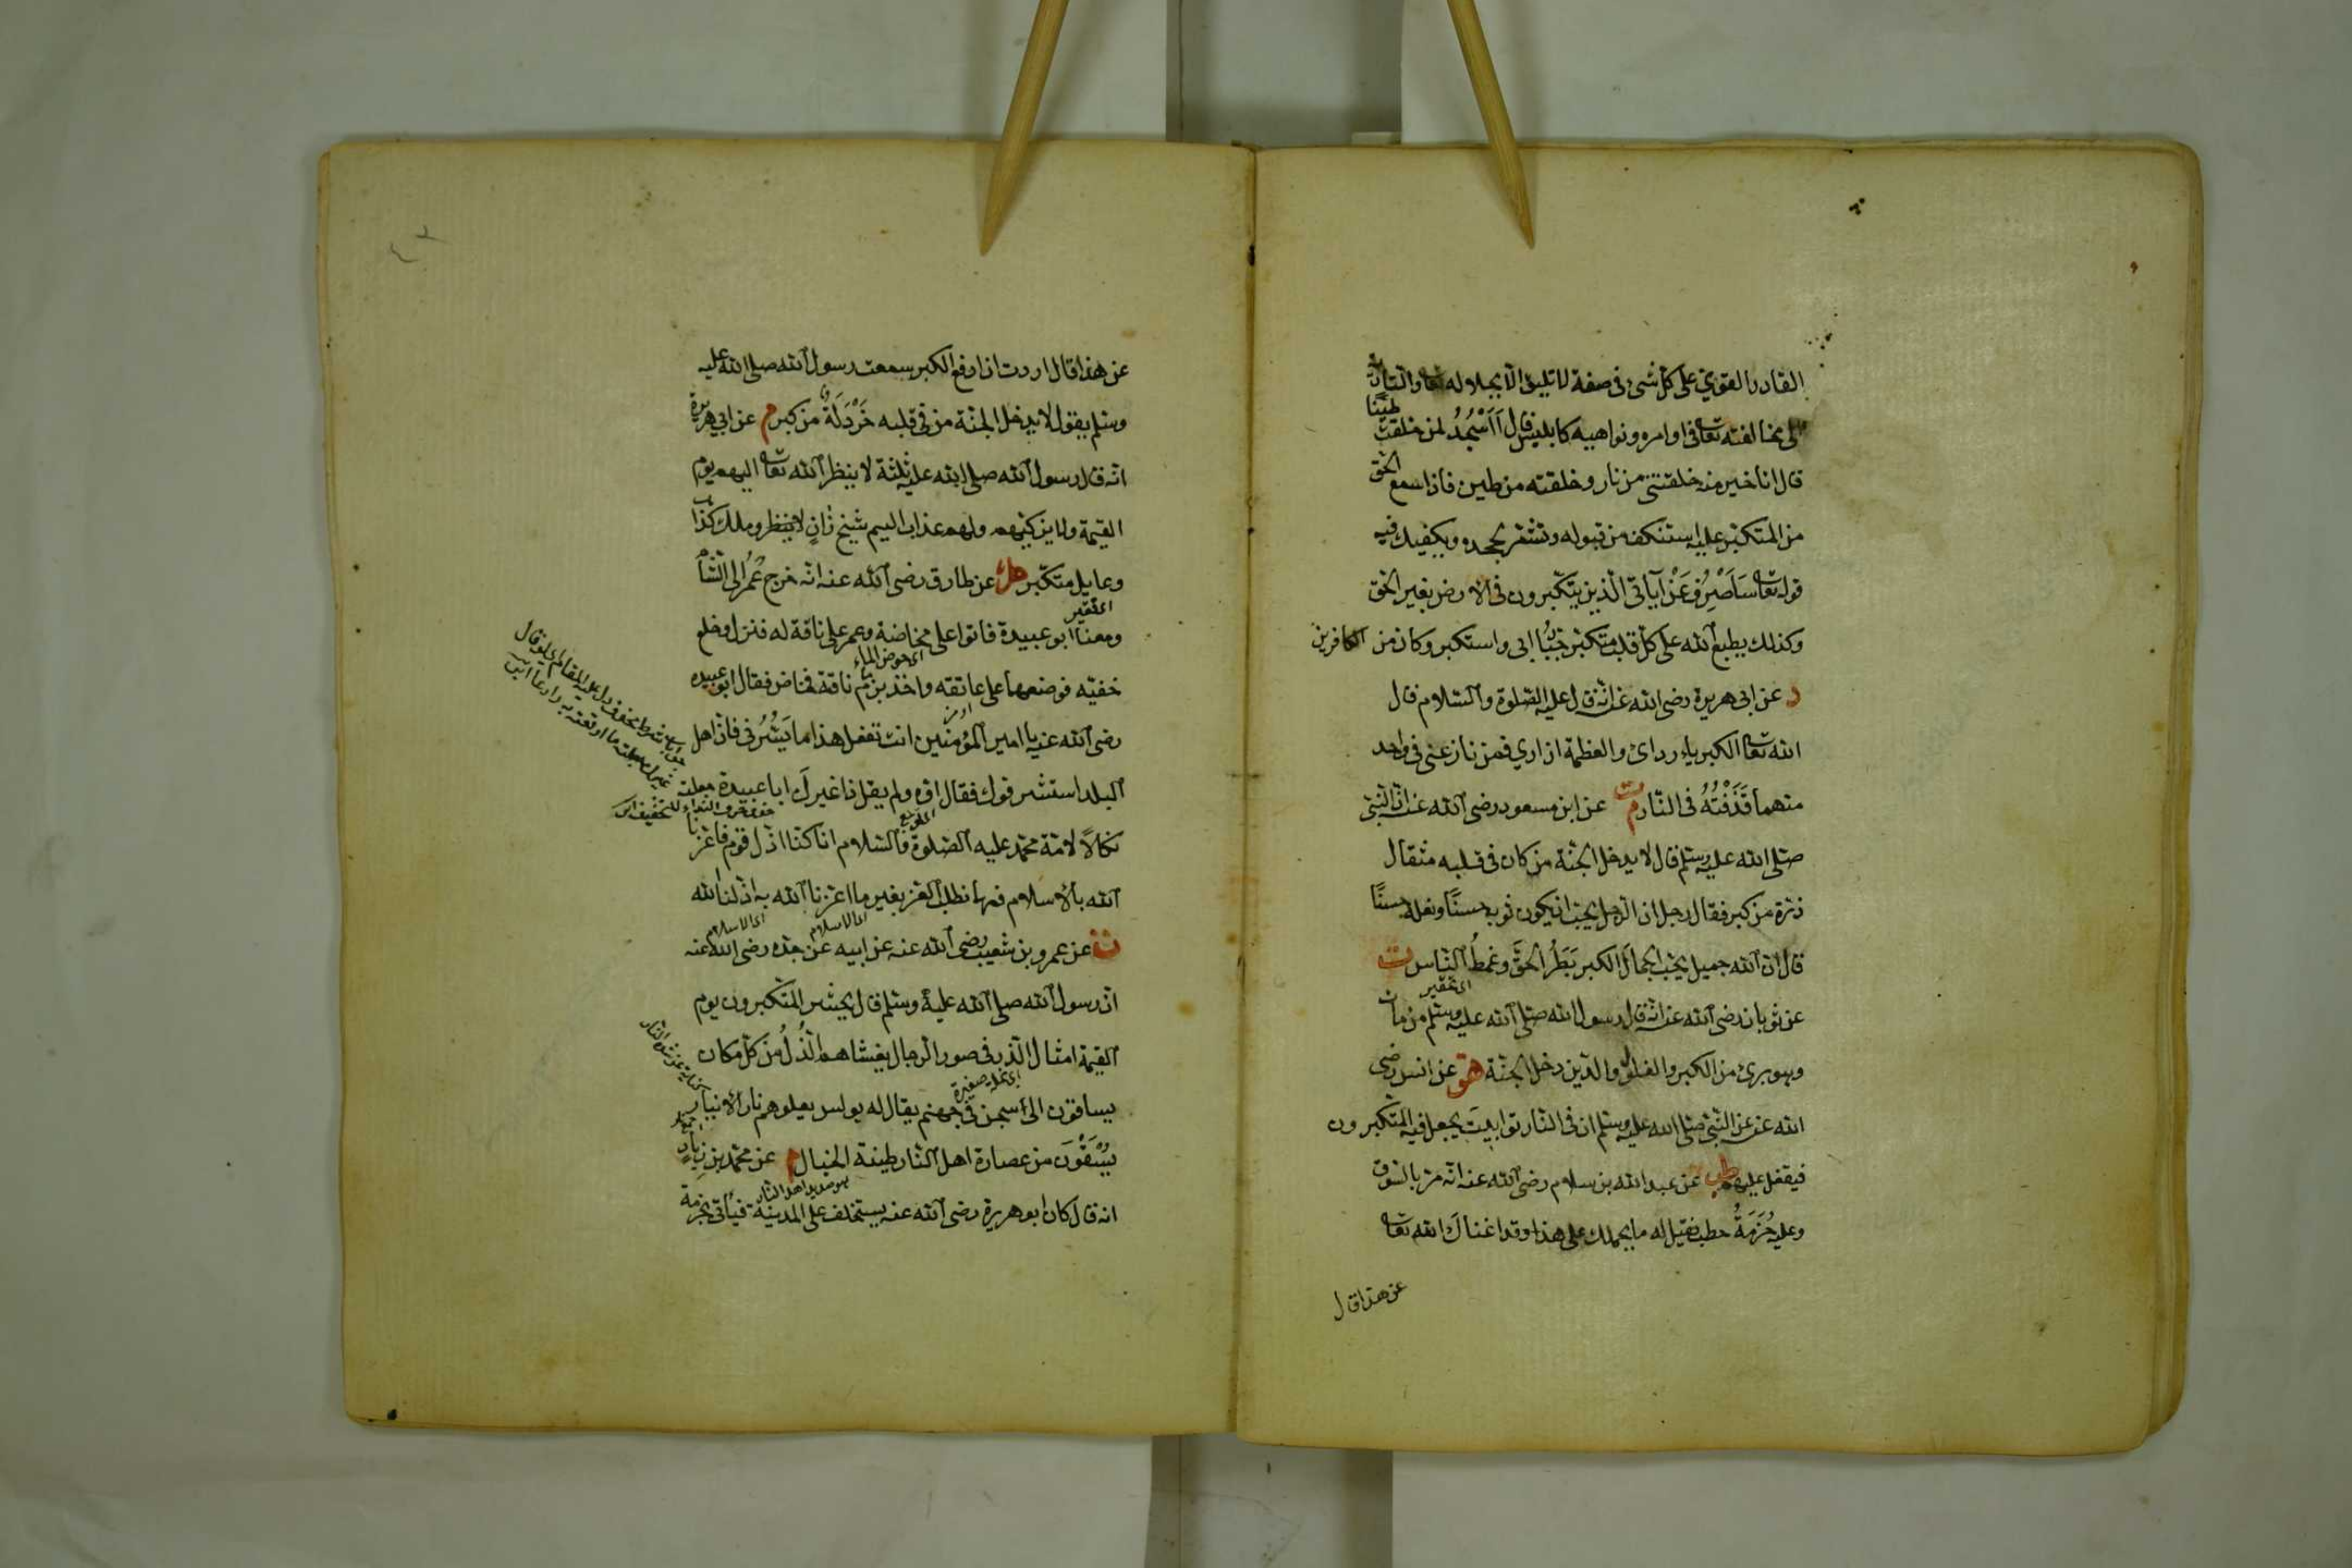 القادر القوي على كل شئ في صفة لا تليق الا بجلاله تعا والثانية
الى مخالفته تعا في اوامره ونواهيه كابليس قال أاَسْجُدُ لمن خلقت طينًا
قال انا خير منه خلقتنى من نار وخلقته من طين فاذا سمع الحق
من المتكبر عليه استنكف من قبوله وتشمر بجحده ويكفيك فيه
قوله تعا سَاَصْرِفُ عَنْ آياتى الذين يتكبرون فى الارض بغير الحق
وكذلك يطبع الله على كل قلب متكبر جبّار ابى واستكبر وكان من الكافرين
د عن ابى هريرة رضى الله عنه انه قال عليه الصلوة والسلام قال
الله تعا الكبرياء ردائ والعظمة ازاري فمن نازعنى فى واحد
منهما قَذَفْتُهُ فى النار م ت عن ابن مسعود رضى الله عنه ان النبى
صلى الله عليه وسلم قال لا يدخل الجنة من كان فى قلبه مثقال
ذرة من كبر فقال رجل ان الرجل يحب ان يكون ثوبه حسنًا ونعله حسنًا
قال ان الله جميل يحب الجمال الكبر بَطَرُ الحقِّ وغمطُ الناس ت
اى تحقير
عن ثوبان رضى الله عنه انه قال رسول الله صلى الله عليه وسلم من مات
وهو برئ من الكبر والغلول والدَّين دخل الجنة هق عن انس رضى
الله عنه عن النبى صلى الله عليه وسلم ان فى النار توابيت يجعل فيه المتكبرون
فيقفل عليهم طب عن عبد الله بن سلام رضى الله عنه انه مر بالسوق
وعليه حُزمَةُ حطب فقيل له ما يحملك على هذا وقد اغناك الله تعا
عن هذا قال
عن هذا قال اردت ان ادفع الكبر سمعت رسول الله صلى الله عليه
وسلم يقول لا يدخل الجنة من فى قلبه خَرْدَلَةٌ من كبر م عن ابى هريرة
انه قال رسول الله صلى الله عليه ثلثة لا ينظر الله تعا اليهم يوم
القيمة ولا يزكيهم ولهم عذاب اليم شيخ زانٍ لا ينظر وملك كذاب
وعايل متكبر هك عن طارق رضى الله عنه انه خرج عُمَرُ الى الشام
اى فقير
ومعنا ابو عبيدة فاتوا على مخاضة وعمر على ناقة له فنزل وخلع
اى حوض الماء
خفيه فوضعهما على عاتقه واخذ بزمام ناقة فخاض فقال ابو عبيده
رضى الله عنه يا امير المؤمنين انت تفعل هذا ما يَسُرُّنى فان اهل
البلد استشرفوك فقال اوه ولم يقل ذا غيرك ابا عبيدة جعلته
نكالاً لامة محمد عليه الصلوة والسلام انا كنا اذل قوم فاعزنا
الله بالاسلام فمهما نطلب العز بغير ما اعزنا الله به اذلنا الله
اى الاسلام
اى الاسلام
ت عن عمرو بن شعيب رضى الله عنه عن ابيه عن جده رضى الله عنه
ان رسول الله صلى الله عليه وسلم قال يحشر المتكبرون يوم
القيمة امثال الذر فى صور الرجال يغشاهم الذُّلُّ من كل مكان
اى نملة صغيرة
يساقون الى سجن فى جهنم يقال له بولس يعلوهم نار الانيار
يُسْقَوْنَ من عصارة اهل النار طينة الخبال م عن محمد بن زيادٍ
هو صديد اهل النار
انه قال كان ابو هريرة رضى الله عنه يستخلف على المدينة فيأتى بحزمة